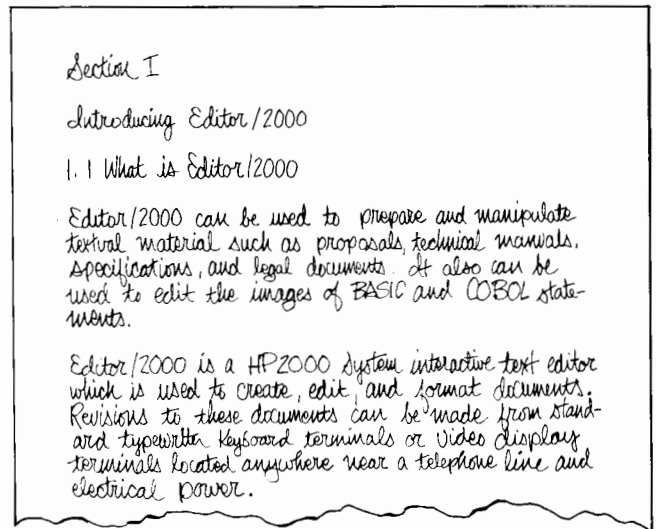 Section I
Introducing Editor/2000
1.1 What is Editor/2000
Editor/2000 can be used to prepare and manipulate
textual material such as proposals, technical manuals,
specifications, and legal documents. It also can be
used to edit the images of BASIC and COBOL state-
ments.
Editor/2000 is a HP2000 System interactive text editor
which is used to create, edit, and format documents.
Revisions to these documents can be made from stand-
ard typewritten Keyboard terminals or video display
terminals located anywhere near a telephone line and
electrical power.